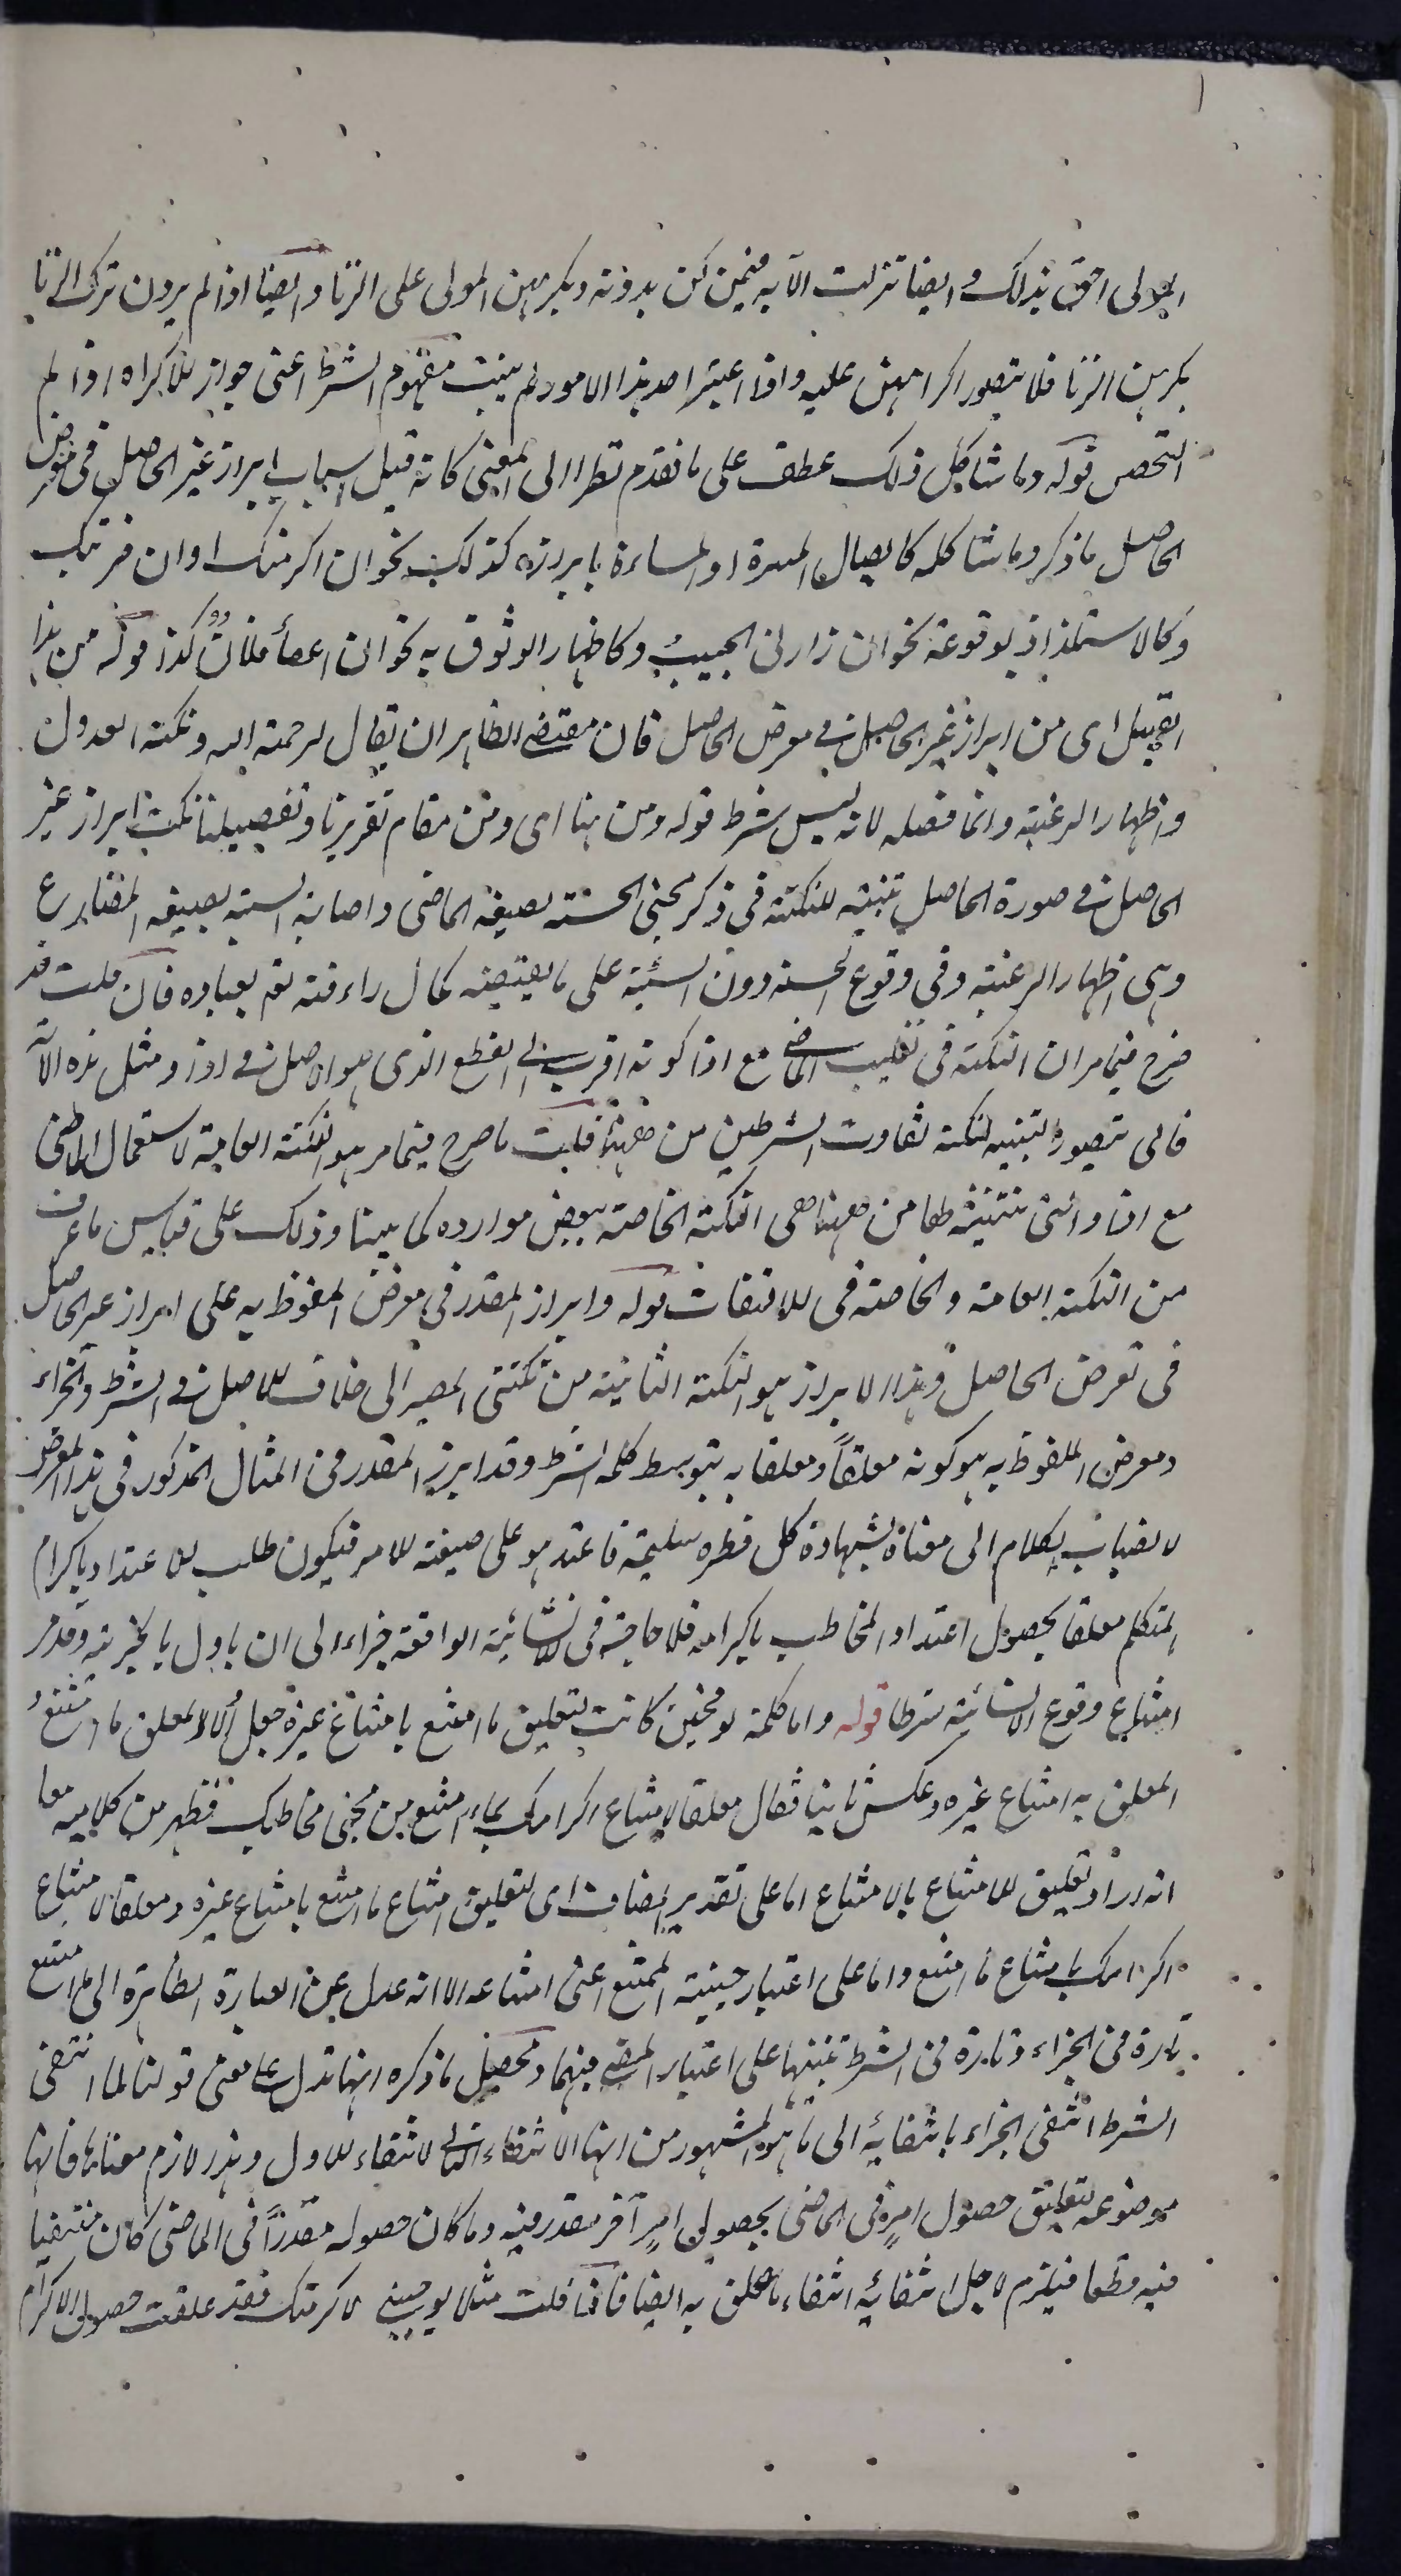 المولى احق بذلك وايضا نزلت الآية فيمن كن يردنه ويكرههن المولى على الزنا وايضا اذا لم يردن ترك الزنا
يكرهن الزنا فلا يتصور اكراههن عليه واذا اعتبر احد هذا الامور لم يثبت مفهوم الشرط اعنى جواز الاكراه اذا لم
التحصن قوله وما شاكل ذلك عطف على ما تقدم نظرا الى المعنى كانه قيل اسباب ابراز غير الحاصل فى معرض
الحاصل ما ذكر وما شاكله كايصال المسرة او المساءة بابرازه كذلك نحو ان اكرمتك او ان ضربتك
وكالاستلذاذ بوقوعه نحو ان زارنى الحبيب وكاظهار الوثوق به نحو ان اعطأ فلان كذا قوله من هذا
القبيل اى من ابراز غير الحاصل فى معرض الحاصل فان مقتضى الظاهر ان يقال ليرحمه الله ونكتة العدول
واظهار الرغبة وانما فصله لانه ليس بشرط قوله ومن هنا اى ومن مقام تقريرنا وتفصيلنا نكت ابراز غير
الحاصل فى صورة الحاصل تنبه للنكتة فى ذكر مجئ الحسنة بصيغة الماضى واصابة السيئة بصيغة المضارع
وهى اظهار الرغبة وفى وقوع الحسنة دون السيئة على ما يقتضيه كمال رأفته تع بعباده فان قلت قد
صرح فيما مر ان النكتة فى تغليب الماضى مع اذا كونه اقرب الى القطع الذى هو الاصل فى اذا ومثل هذه الآية
فانى يتصور التنبيه لنكتة تفاوت الشرطين من ههنا قلت ما صرح فيما مر هو النكتة العامة لاستعمال الماضى
مع اذا والتى تتنبه لها من ههنا هى النكتة الخاصة ببعض موارده كما بينا وذلك على قياس ما عرف
من النكتة العامة والخاصة فى الالتفات قوله وابراز المقدر فى معرض الملفوظ به على ابراز غير الحاصل
فى معرض الحاصل وهذا الابراز هو النكتة الثانية من نكتتى المصير الى خلاف الاصل فى الشرط والجزاء
ومعرض الملفوظ به هو كونه معلقاً ومعلقا به بتوسط كلمة الشرط وقد ابرز المقدر فى المثال المذكور فى هذا المعرض
لانصباب الكلام الى معناه بشهادة كل فطرة سليمة فاعتد هو على صيغة الامر فيكون طلب للاعتداد باكرام
المتكلم معلقا بحصول اعتداد المخاطب باكرامه فلا حاجة فى الانشائية الواقعة جزاء الى ان ياول بالخبرية وقد مر
امتناع وقوع الانشائية شرطا قوله واما كلمة لو فحين كانت لتعليق ما امتنع بامتناع غيره جعل اولا المعلق ما امتنع
المعلق به امتناع غيره وعكس ثانيا فقال معلقا لامتناع اكرامك بما امتنع من مجئ مخاطبك فظهر من كلاميه معا
انه اراد تعليق الامتناع بالامتناع اما على تقدير المضاف اى لتعليق امتناع ما امتنع بامتناع غيره ومعلقا لامتناع
اكرامك بامتناع ما امتنع واما على اعتبار حيثية الممتنع اعنى امتناعه الا انه عدل عن العبارة الظاهرة الى ما امتنع
تارة فى الجزاء وتارة فى الشرط تنبيها على اعتبار المضى فيهما ومحصل ما ذكره انها تدل على معنى قولنا لما انتفى
الشرط انتفى الجزاء بانتفائه الى ما هو المشهور من انها لانتفاء الثانى لانتفاء الاول وهذا لازم معناها فانها
موضوعة لتعليق حصول امر فى الماضى بحصول امر آخر مقدر فيه وما كان حصوله مقدراً فى الماضى كان منتفيا
فيه قطعا فيلزم لاجل انتفائه انتفاء ما علق به ايضا فاذا قلت مثلا لو جئتنى لاكرمتك فقد علقت حصول الاكرام